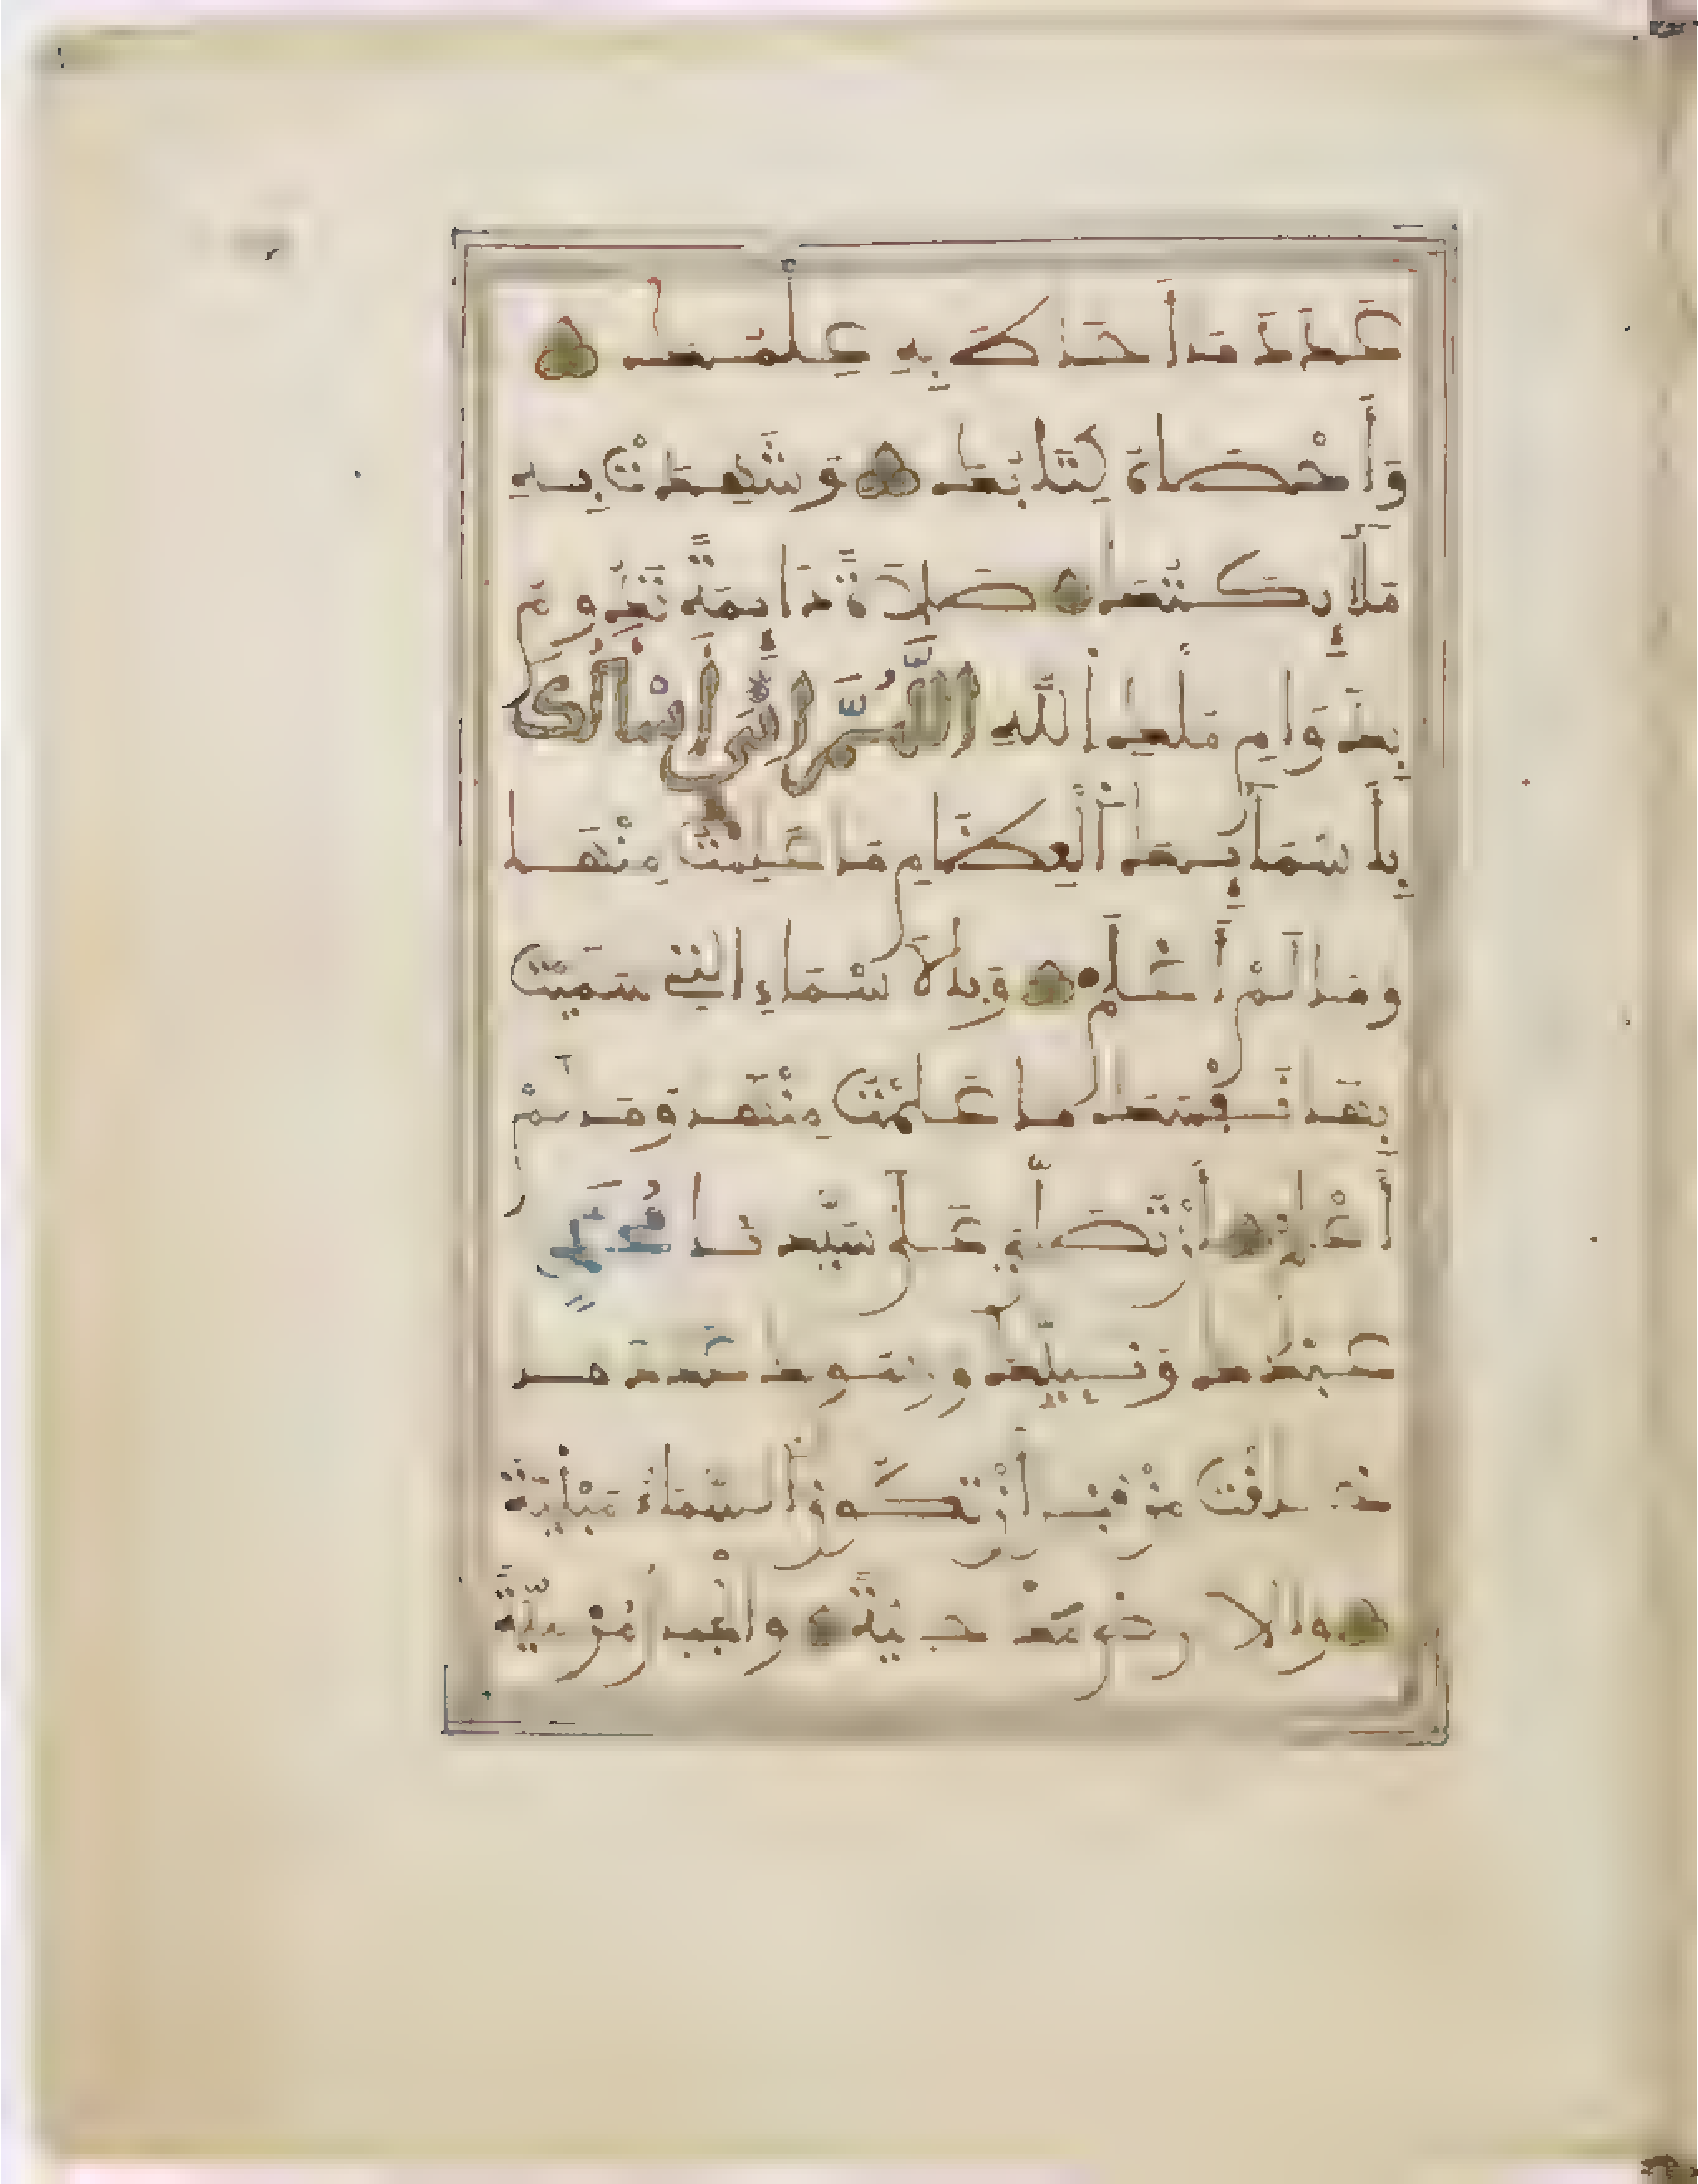 عَدَدَ مَا أَحَاطَ بِهِ عِلْمُكَ
وَأَحْصَاهُ كِتَابُكَ وَشَهِدَتْ بِهِ
مَلَائِكَتُكَ صَلَاةً دَائِمَةً تَدُومُ
بِدَوَامِ مُلْكِ اللَّهِ اللَّهُمَّ إِنِّي أَسْأَلُكَ
بِأَسْمَائِكَ الْعِظَامِ مَا عَلِمْتُ مِنْهَا
وَمَا لَمْ أَعْلَمْ وَبِالْأَسْمَاءِ الَّتِي سَمَّيْتَ
بِهَا نَفْسَكَ مَا عَلِمْتُ مِنْهَا وَمَا لَمْ
أَعْلَمْ أَنْ تُصَلِّيَ عَلَى سَيِّدِنَا مُحَمَّدٍ
عَبْدِكَ وَنَبِيِّكَ وَرَسُولِكَ عَدَدَ مَا
خَلَقْتَ مِنْ قَبْلِ أَنْ تَكُونَ السَّمَاءُ مَبْنِيَّةً
وَالْأَرْضُ مَدْحِيَّةً وَالْجِبَالُ مُرْسِيَّةً